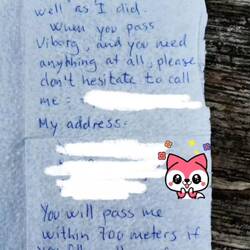 well as I did.
When you pass
Viborg, and you need
anything at all, please
don't hesitate to call
me:
My address:
You will pass me
within 700 meters if